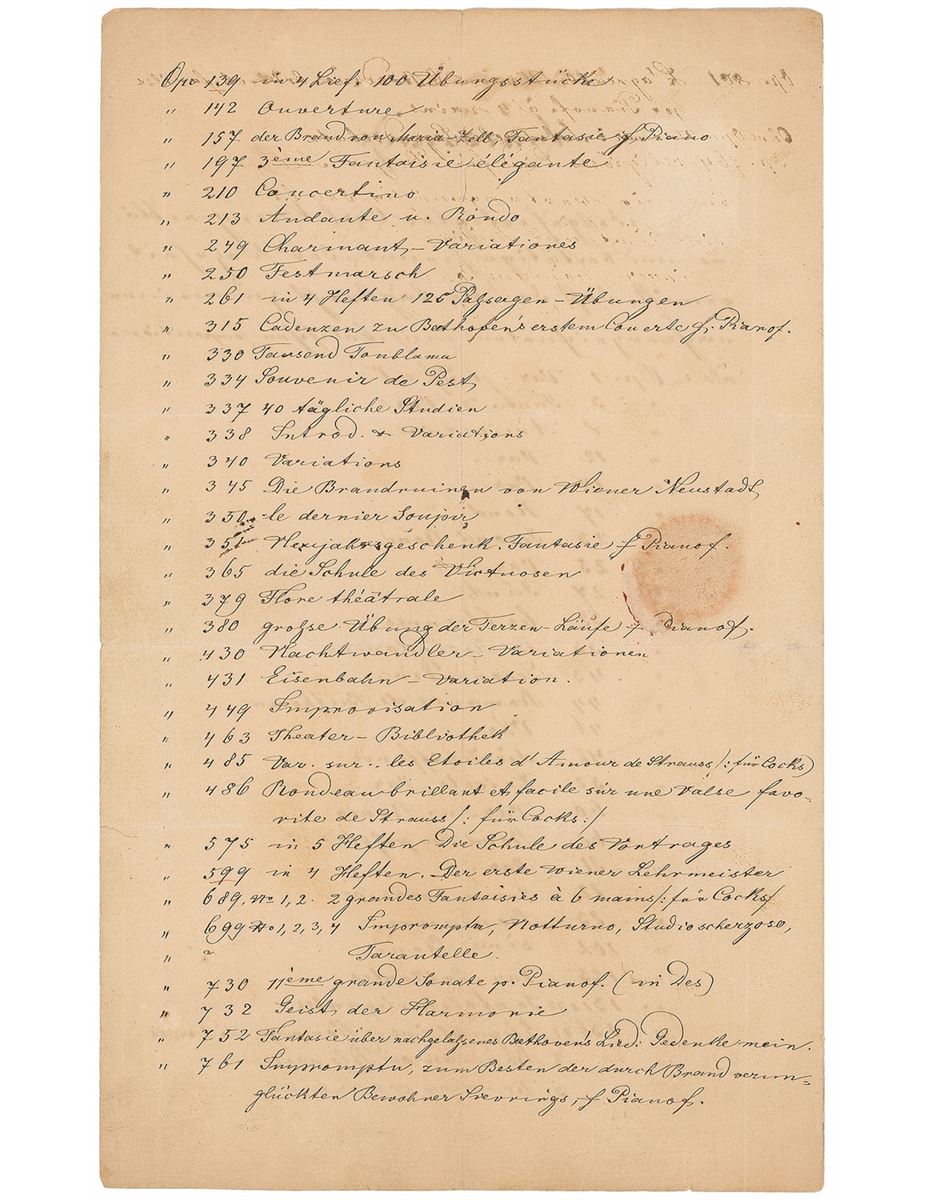 Opu 139 in 4 Lief. 100 Übungsstücke
" 142 Ouverture
" 157. der Brand von Maria-Zell, Fantasie f Piano
" 197 3ème Fantaisie élégante
" 210 Concertino
" 213 Andante u. Rondo
" 249 Charmant-Variationes
" 250 Festmarsch
" 261 in 4 Heften 125 Passagen-Übungen
" 315 Cadenzen zu Bethofen's erstem Concerte f. Pianof.
" 330 Tausend
" 334 Souvenir de Pest
" 337 40 tägliche Studien
" 338 Introd. & Variations
" 340 Variations
" 345 Die Brandruinen von Wiener Neustadt
" 350 le dernier Soupir
" 351 Neujahrsgeschenk. Fantasie f Pianof.
" 365 die Schule des Virtuosen
" 379 Flore théâtrale
" 380 grosse Übung der Terzen-Läufe f Pianof.
" 430 Nachtwandler-Variationen
" 431 Eisenbahn-Variation.
" 449 Improvisation
" 463 Theater-Bibliothek
" 485 Var. sur les Etoiles d'Amour de Strauss /: für Cocks)
" 486 Rondeau brillant et facile sur une Valse favo-
rite de Strauss /: für Cocks :/
" 575 in 5 Heften Die Schule des Vortrages
" 599 in 4 Heften. Der erste Wiener Lehrmeister
" 689. No 1, 2. 2 grandes Fantaisies à 6 mains /: für Cocks/
" 699 No 1, 2, 3, 4 Impromptu, Notturno, Studio scherzoso,
" ? Tarantelle.
" 730 11ème grande Sonate p. Pianof. (in Des)
" 732 Geist der Harmonie
" 752 Fantasie über nachgelassenes Bethoven's Lied: Gedenke mein.
" 761 Impromptu, zum Besten der durch Brand verun-
glückten Bewohner Sievrings, f Pianof.